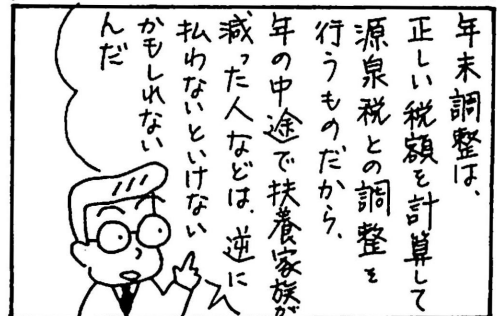 年末調整は、
正しい税額を計算して
源泉税との調整を
行うものだから、
年の中途で扶養家族が
減った人などは、逆に
払わないといけない
かもしれない
んだ